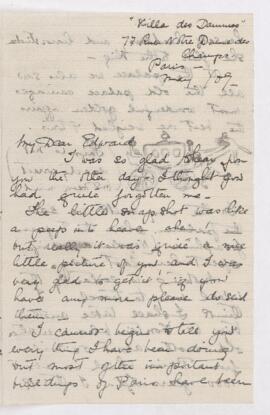 "Villa des Dammes"
77 Rue Notre Dame des
Champs
Paris -
May
My Dear Edward
I was so glad to hear from
you the other day - I thought you
had quite forgotten me -
The little snapshot was like
a peep into heaven
but really it was quite a nice
little picture of you and I was
very glad to get it! if you
have any more please do send
them -
I cannot begin to tell you
everything I have been doing
but most of the important
buildings of Paris have been